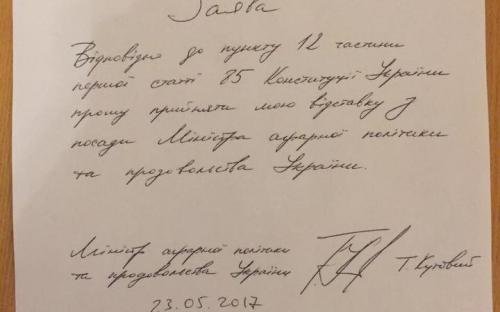 Заява
Відповідно до пункту 12 частини
першої статті 85 Конституції України
прошу прийняти мою відставку з
посади Міністра аграрної політики
та продовольства України.
Міністр аграрної політики
та продовольства України
Т. Кутовий
23.05.2017